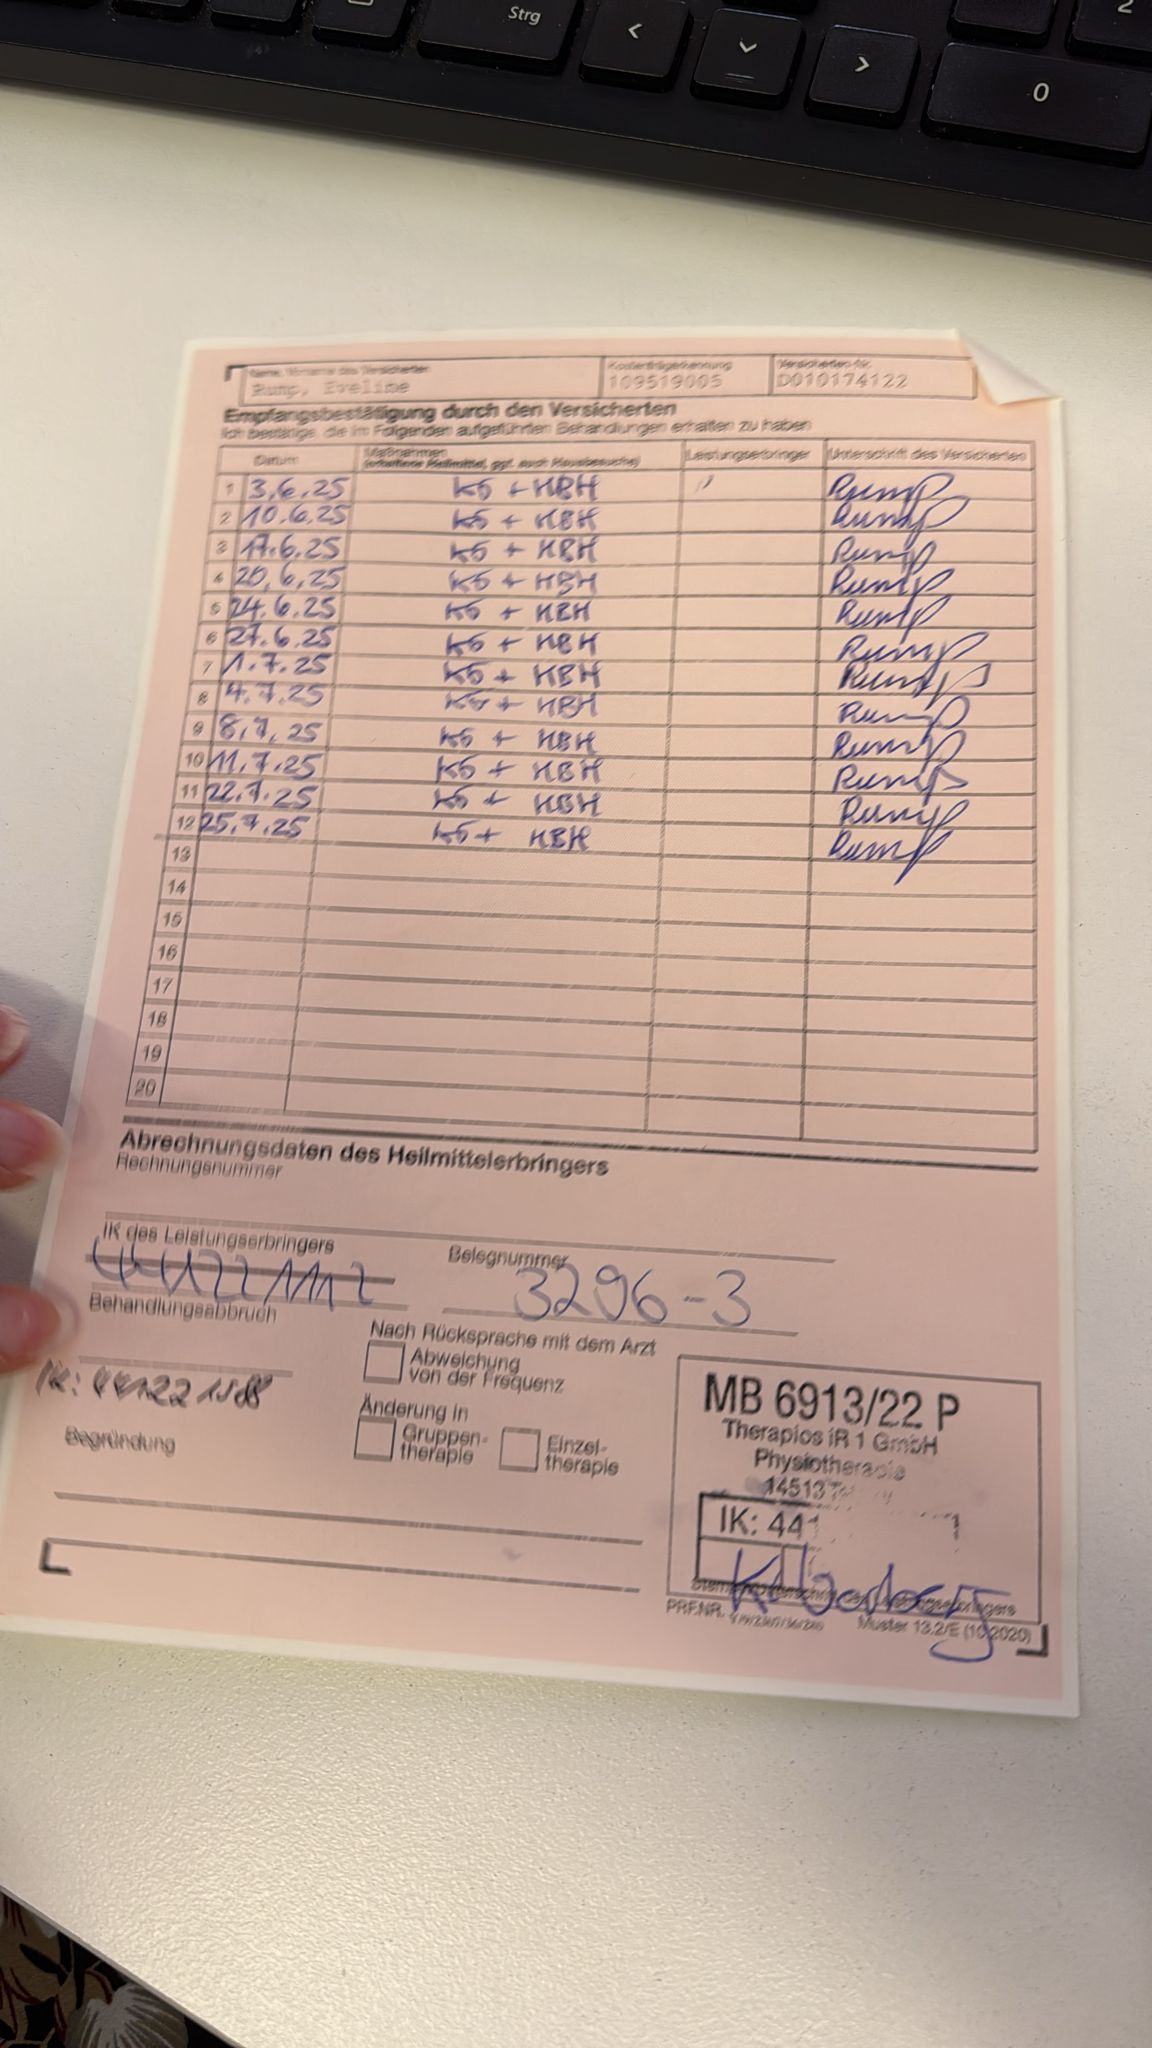 Strg
<
>
0
2
Name, Vorname des Versicherten
Kostenträgerkennung
Versicherten-Nr.
Rump, Eveline
109519005
D010174122
Empfangsbestätigung durch den Versicherten
Ich bestätige, die im Folgenden aufgeführten Behandlungen erhalten zu haben
Datum
Maßnahmen
(erhaltene Heilmittel, ggf. auch Hausbesuche)
Leistungserbringer
Unterschrift des Versicherten
1 3.6.25 KG + HBH Rump
2 10.6.25 KG + HBH Rump
3 17.6.25 KG + HBH Rump
4 20.6.25 KG + HBH Rump
5 24.6.25 KG + HBH Rump
6 27.6.25 KG + HBH Rump
7 1.7.25 KG + HBH Rump
8 4.7.25 KG + HBH Rump
9 8.7.25 KG + HBH Rump
10 11.7.25 KG + HBH Rump
11 22.7.25 KG + HBH Rump
12 25.7.25 KG + HBH Rump
13
14
15
16
17
18
19
20
Abrechnungsdaten des Heilmittelerbringers
Rechnungsnummer
IK des Leistungserbringers
Belegnummer
3296-3
Behandlungsabbruch
Nach Rücksprache mit dem Arzt
Abweichung
von der Frequenz
IK:
Änderung in
Gruppen-
therapie
Einzel-
therapie
Begründung
MB 6913/22 P
Therapios iR 1 GmbH
Physiotherapie
14513
IK: 441
PRF.NR.
Muster 13.2/E (10.2020)